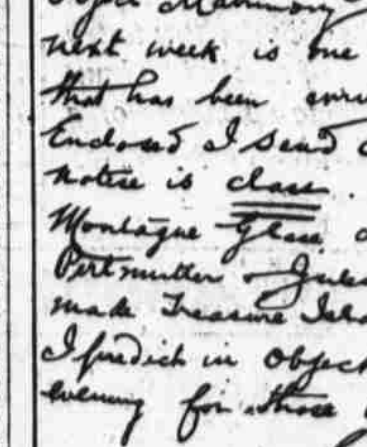 Object Matrimony
next week is one
that has been
Enclosed I send
notice is class.
Montague Glass
Perlmutter & Jules
made Treasure Isla
I predict in Object
evening for those